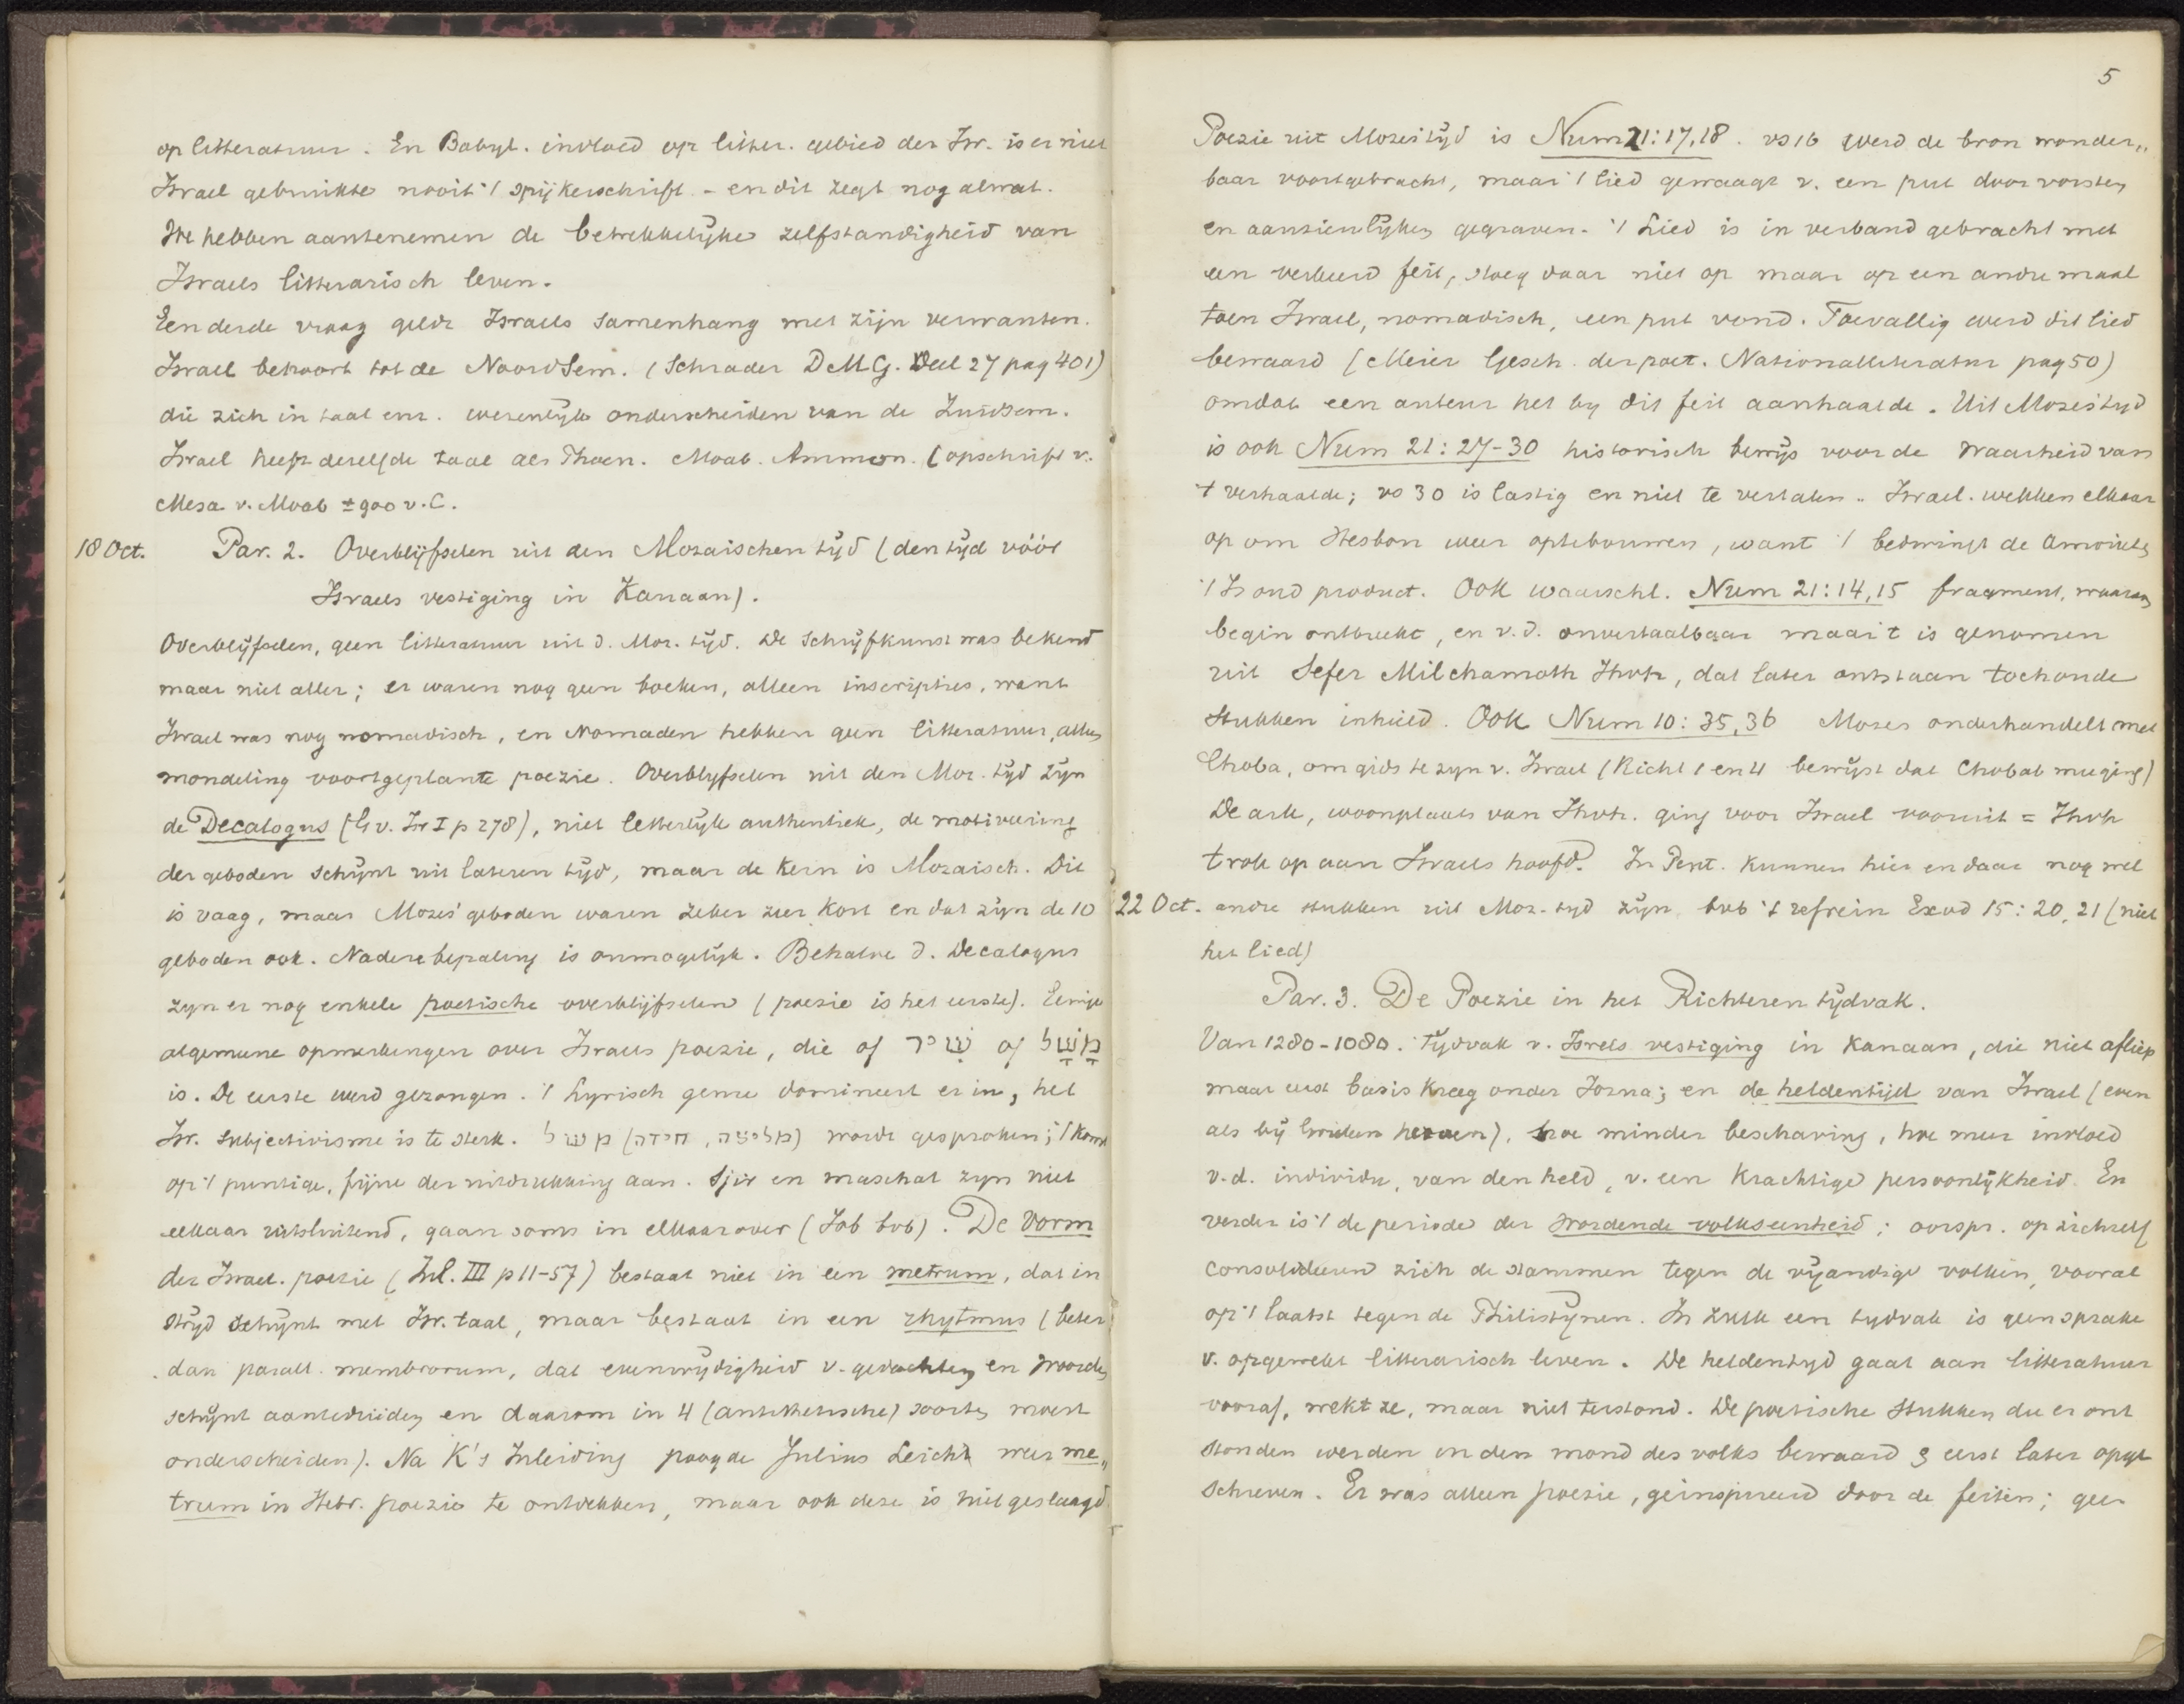 op litteratuur. En Babyl. invloed op litter. gebied der Isr. is er niet
Israel gebruikte nooit 't spijkerschrift - en dit zegt nog alwat.
We hebben aantenemen de betrekkelijke zelfstandigheid van
Israels litterarisch leven.
Een derde vraag geldt Israels samenhang met zijn verwanten.
Israel behoort tot de NoordSem. (Schrader D M G. Deel 27 pag 401)
die zich in taal enz. wezenlijk onderscheiden van de Zuidsem.
Israel heeft dezelfde taal als Phoen. Moab. Ammon. (opschrift v.
Mesa v. Moab ± 900 v. C.
18 Oct. Par. 2. Overblijfselen uit den Mozaischen tijd (den tijd vóór
Israels vestiging in Kanaan).
Overblijfselen, geen litteratuur uit d. Moz. tijd. De schrijfkunst was bekend
maar niet aller; er waren nog geen boeken, alleen inscripties, want
Israel was nog nomadisch, en Nomaden hebben geen litteratuur, alles
mondeling voortgeplante poezie. Overblyfselen uit den Moz. tijd zijn
de Decalogus (Gv. Isr I p 278), niet letterlijk authentiek, de motiveering
der geboden schijnt uit lateren tijd, maar de kern is Mozaisch. Dit
is vaag, maar Mozes' geboden waren zeker zeer kort en dat zijn de 10
geboden ook. Nadere bepaling is onmogelijk. Behalve d. Decalogus
zyn er nog enkele poetische overblijfselen (poezie is het eerste). Eenige
algemeene opmerkingen over Israels poezie, die of שיר of משל
is. De eerste werd gezongen. 't Lyrisch genre domineert er in, het
Isr. subjectivisme is te sterk. משל (מליצה, חידה) wordt gesproken; 't komt
op 't puntige, fijne der uitdrukking aan. Sjir en maschal zyn niet
elkaar uitsluitend, gaan soms in elkaar over (Job bvb). De Vorm
der Israel. poezie (Inl. III p 11-57) bestaat niet in een metrum, dat in
strijd schijnt met Isr. taal, maar bestaat in een rhytmus (beter
dan parall. membrorum, dat evenwijdigheid v. gedachten en woorden
schijnt aanteduiden en daarom in 4 (antithetische) soorten moest
onderscheiden). Na K's Inleiding poogde Julius Leicht weer me„
trum in Hebr. poezie te ontdekken, maar ook deze is niet geslaagd
5
Poezie uit Mozes' tijd is Num 21:17,18. vs 16 werd de bron wonder„
baar voortgebracht, maar 't lied gewaagt v. een put door vorsten
en aanzienlijken gegraven. 't Lied is in verband gebracht met
een verkeerd feit, sloeg daar niet op maar op een andre maal
toen Israel, nomadisch, een put vond. Toevallig werd dit lied
bewaard (Meier Gesch. der poet. Nationalliteratur pag 50)
omdat een auteur het by dit feit aanhaalde. Uit Mozes' tyd
is ook Num 21:27-30 historisch bewijs voor de waarheid van
't verhaalde; vs 30 is lastig en niet te vertalen. Israel. wekken elkaar
op om Hesbon weer optebouwen, want 't bedwingt de Amorieten
't Is oud product. Ook waarschl. Num 21:14,15 fragment, waaraan
begin ontbreekt, en v.d. onvertaalbaar maar 't is genomen
uit Sefer Milchamoth Jhvh, dat later ontstaan toch oude
stukken inhield. Ook Num 10:35,36 Mozes onderhandelt met
Choba, om gids te zyn v. Israel (Richt 1 en 4 bewijst dat Chobab meeging)
De ark, woonplaats van Jhvh. ging voor Israel vooruit = Jhvh
trok op aan Israels hoofd. In Pent. kunnen hier en daar nog wel
22 Oct. andre stukken uit Moz. tyd zijn bvb 't refrein Exod 15:20,21 (niet
het lied)
Par. 3. De Poezie in het Richteren tijdvak.
Van 1280-1080. Tijdvak v. Isrels vestiging in Kanaan, die niet afliep
maar eerst basis kreeg onder Jozua; en de heldentijd van Israel (even
als bij Grieken heroen), hoe minder beschaving, hoe meer invloed
v.d. individu, van den held, v. een krachtige persoonlijkheid. En
verder is 't de periode der wordende volkseenheid; oorspr. op zichzelf
consolideeren zich de stammen tegen de vijandige volken, vooral
op 't laatst tegen de Philistijnen. In zulk een tydvak is geen sprake
v. opgewekt litterarisch leven. De heldentyd gaat aan litteratuur
vooraf, wekt ze, maar niet terstond. De poetische stukken die er ont
stonden werden in den mond des volks bewaard & eerst later opge
schreven. Er was alleen poezie, geinspireerd door de feiten; geen